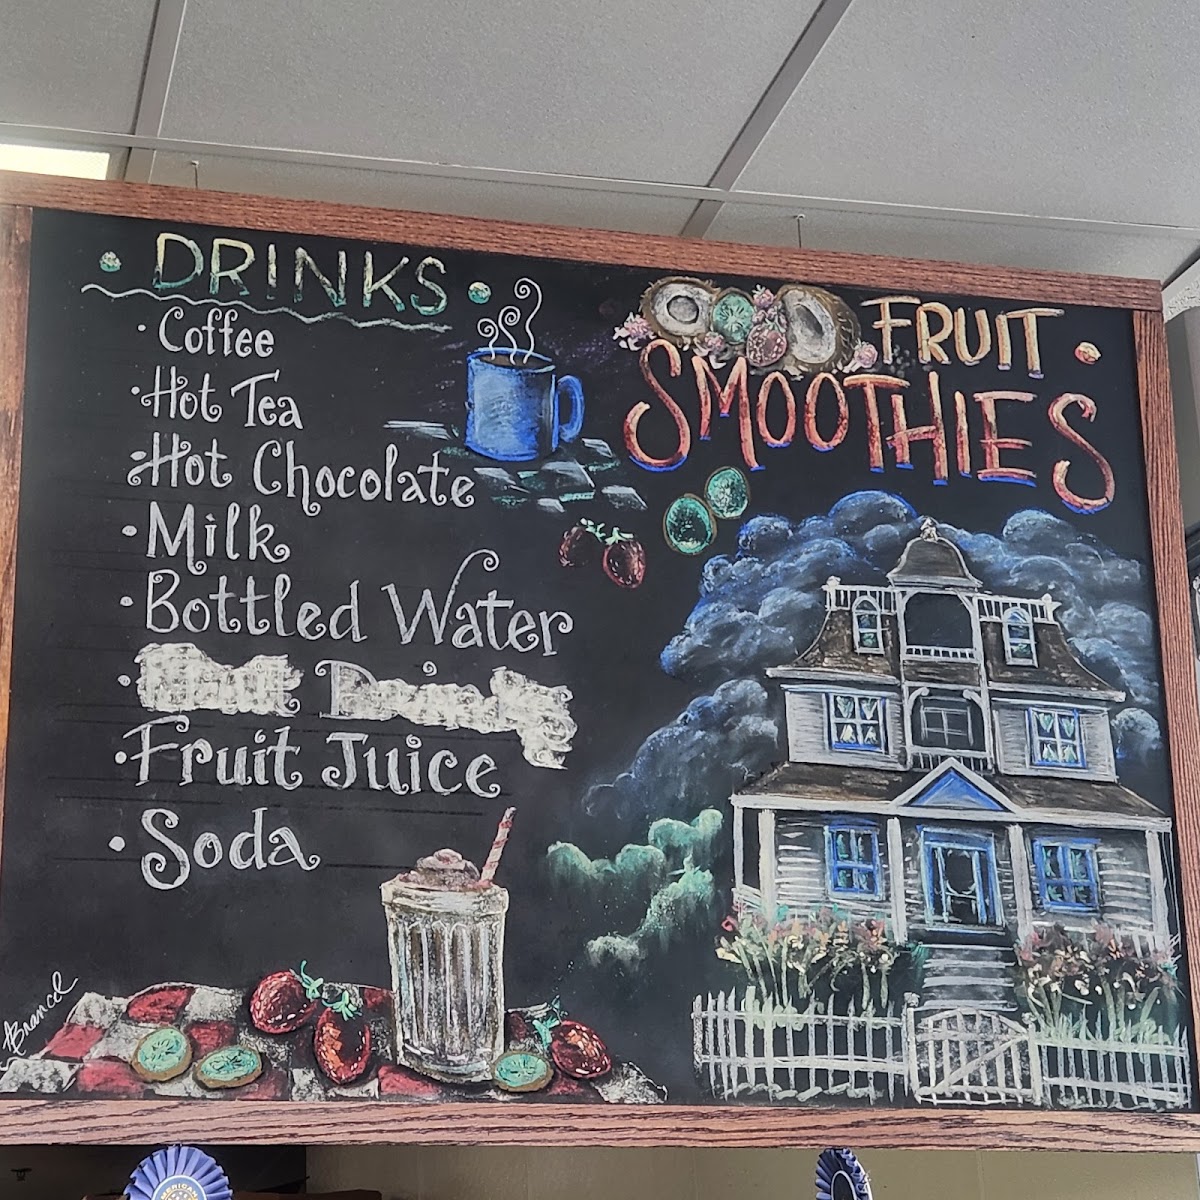 DRINKS
• Coffee
• Hot Tea
• Hot Chocolate
• Milk
• Bottled Water
• Fruit Juice
• Soda
FRUIT
SMOOTHIES
ABrancel